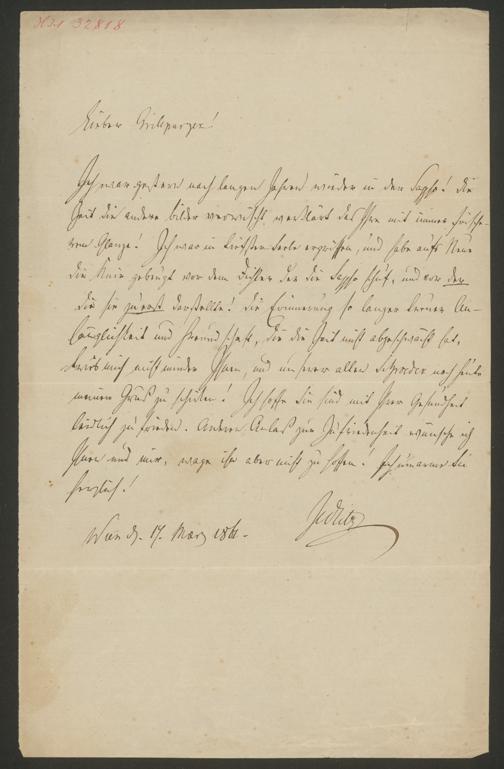 H.I.N. 32818
Lieber Grillparzer!
Ich war gestern nach langen Jahren wieder in der Sappho! die
Zeit die andere Bilder verwischt verklärt das Ihre mit immer frische-
rem Glanze! Ich war in tiefster Seele ergriffen, und habe aufs Neue
die Knie gebeugt vor dem Dichter der die Sappho schuf, und vor der
die sie zuerst darstellte! Die Erinnerung so langer treuer An-
hänglichkeit und Freundschaft, die die Zeit nicht abgeschwächt hat,
treibt mich Ihnen, und unserer alten Schroeder noch heute
meinen Gruß zu schicken! Ich hoffe Sie sind mit Ihrer Gesundheit
leidlich zu frieden. Andern Anlaß zur Zufriedenheit wünsche ich
Ihnen und mir, wage ihn aber nicht zu hoffen! Ich umarme Sie
herzlich!
Zedlitz
Wien d. 17. März 1861.